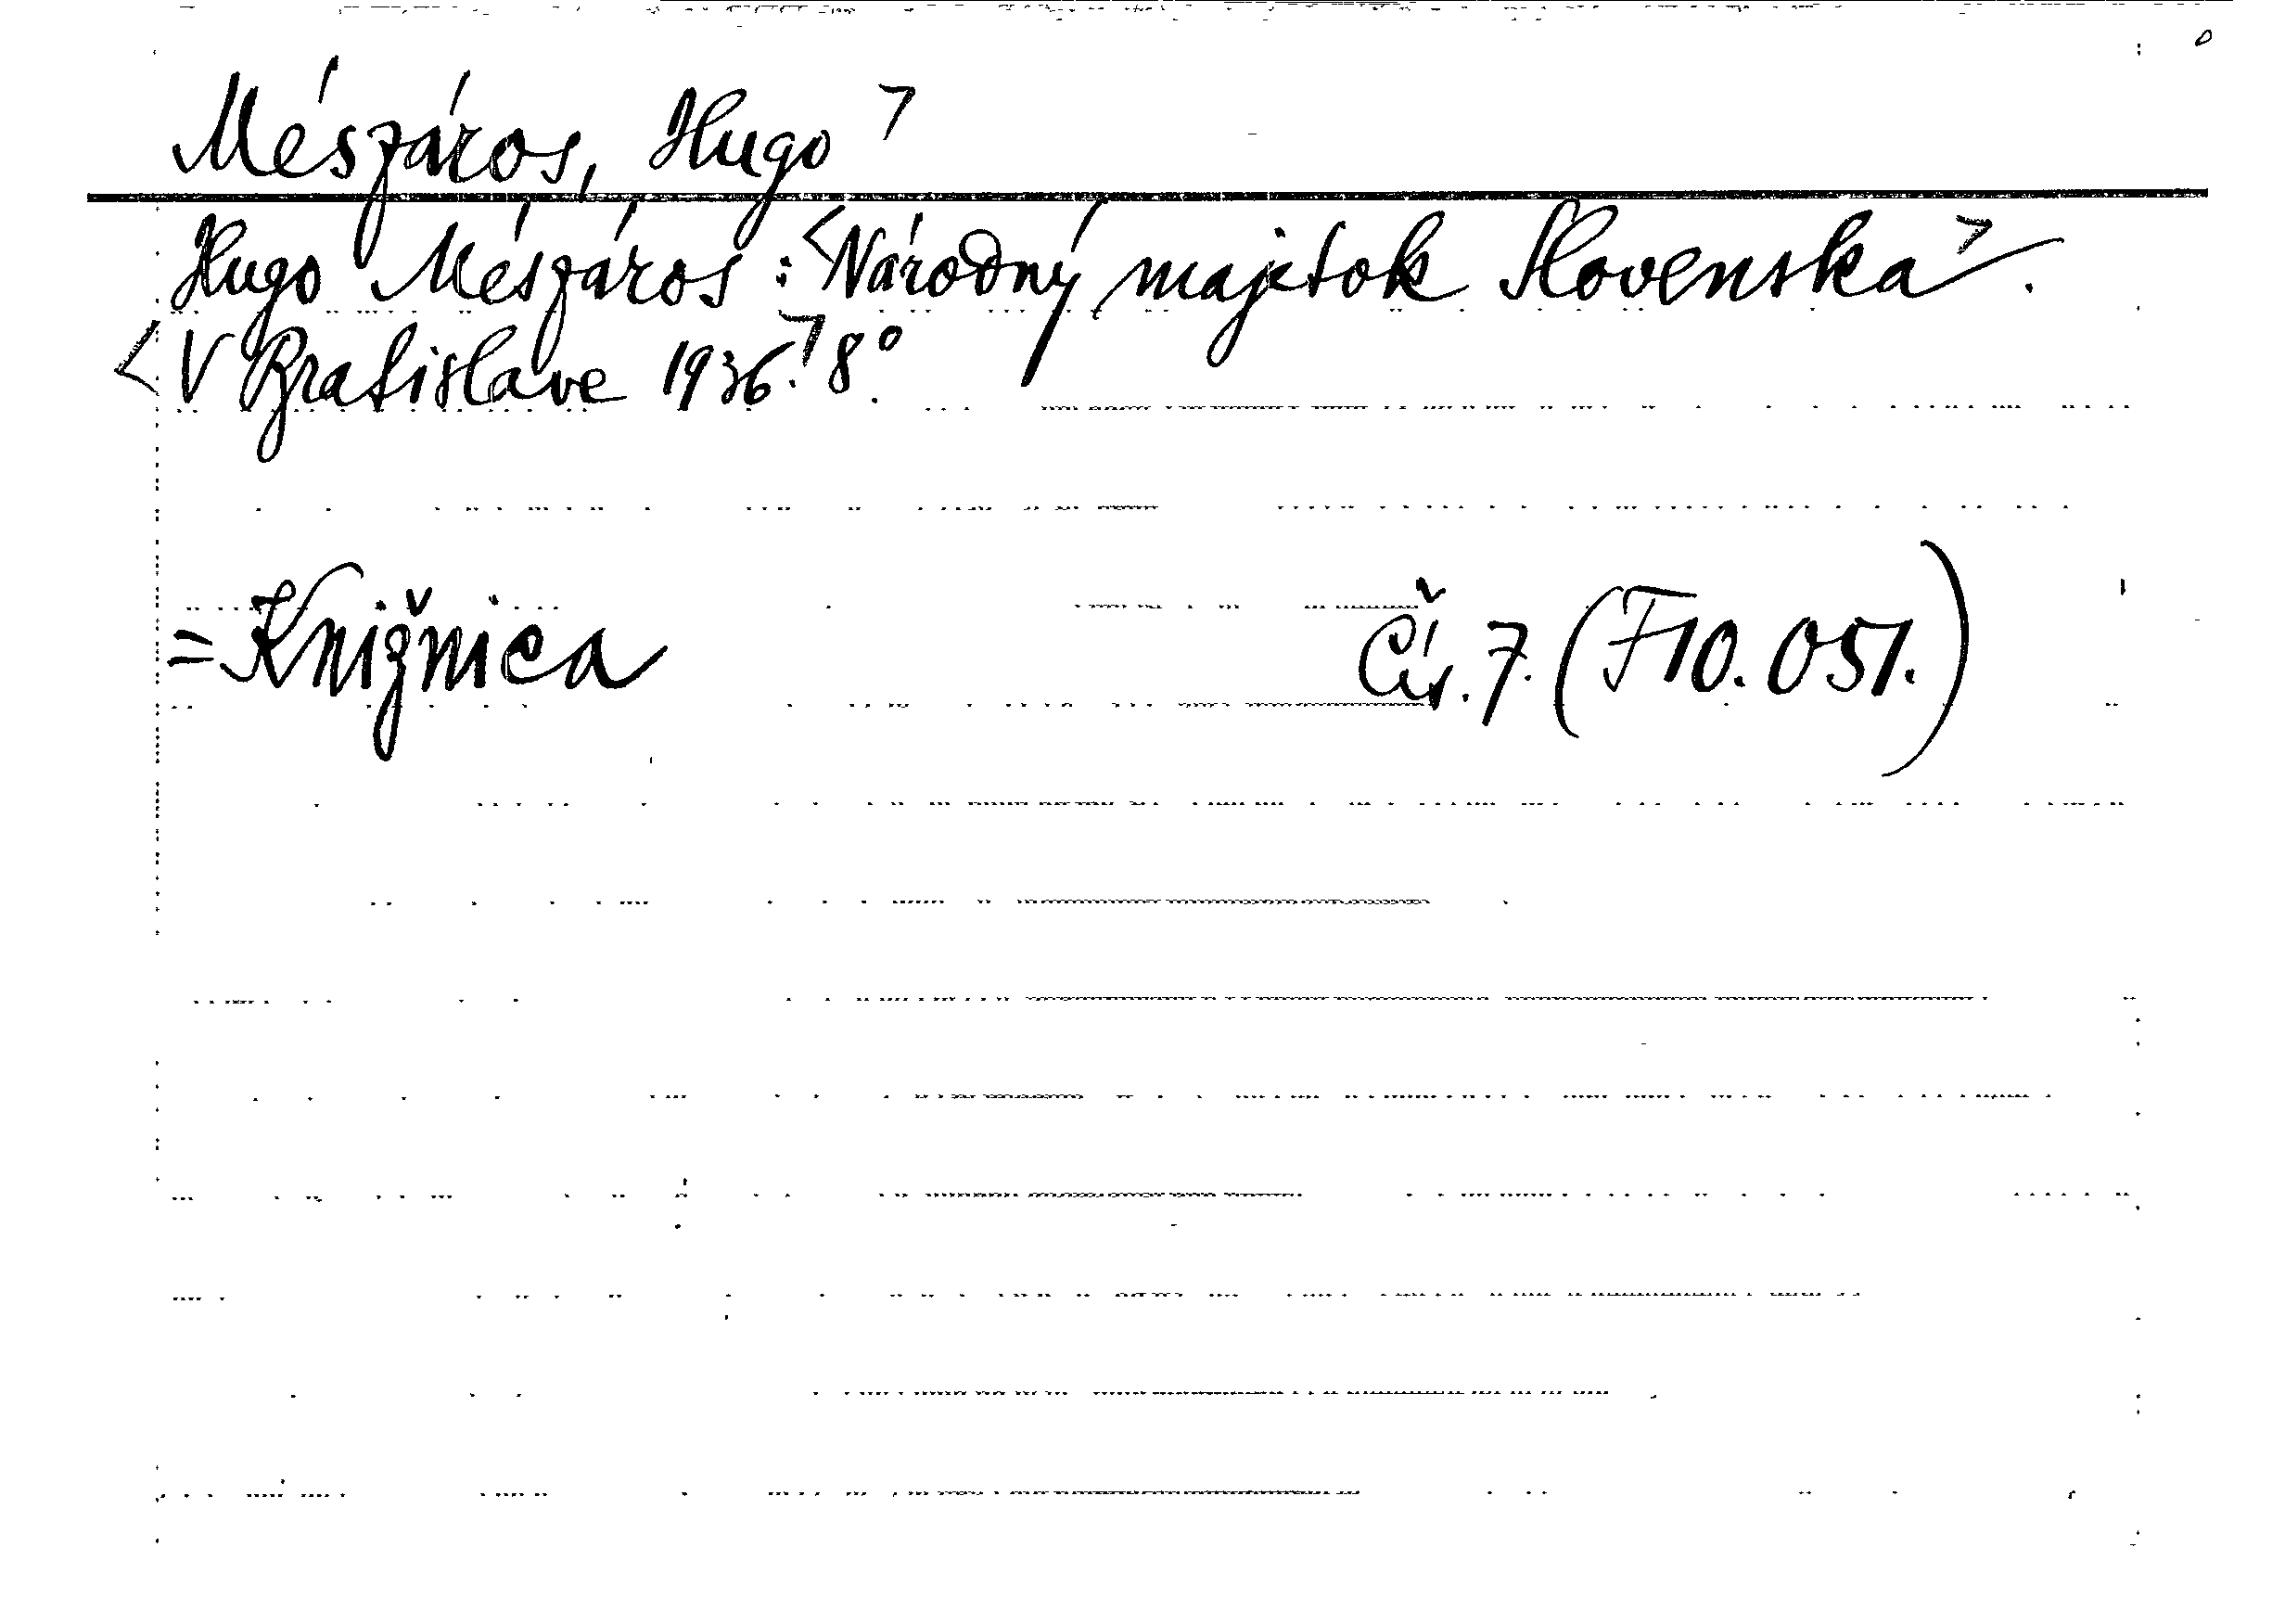 Mészáros, Hugo ┐
Hugo Mészáros : <Národný majetok Slovenska┐.
<V Bratislave 1936.┐ 8°.
= Knižnica Čís. 7. (F 10.051.)